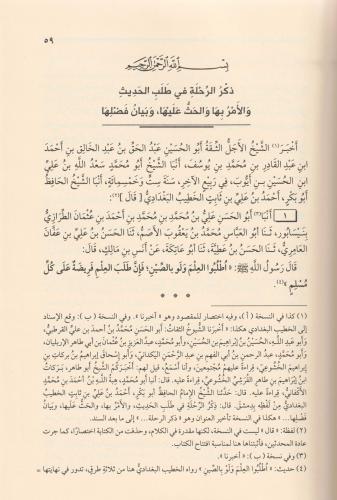 ٥٩
بِسْمِ اللَّهِ الرَّحْمَنِ الرَّحِيمِ
ذِكْرُ الرِّحْلَةِ فِي طَلَبِ الحَدِيثِ
وَالأَمْرُ بِهَا وَالحَثُّ عَلَيْهَا، وَبَيَانُ فَضْلِهَا
أَخْبَرَ(١) الشَّيْخُ الأَجَلُّ الثِّقَةُ أَبُو الحُسَيْنِ عَبْدُ الحَقِّ بنُ عَبْدِ الخَالِقِ بنِ أَحْمَدَ
ابنِ عَبْدِ القَادِرِ بنِ مُحَمَّدِ بنِ يُوسُفَ، أَنْبَا الشَّيْخُ أَبُو مُحَمَّدٍ سَعْدُ اللَّهِ بنُ عَلِيِّ
ابنِ الحُسَيْنِ بنِ أَيُّوبَ، فِي رَبِيعٍ الآخِرِ، سَنَةَ سِتٍّ وَخَمْسِمِائَةٍ، أَنْبَا الشَّيْخُ الحَافِظُ
أَبُو بَكْرٍ، أَحْمَدُ بنُ عَلِيِّ بنِ ثَابِتٍ الخَطِيبُ البَغْدَادِيُّ [ قَالَ ](٢):
١ أَنْبَا(٣) أَبُو الحَسَنِ عَلِيُّ بنُ مُحَمَّدِ بنِ مُحَمَّدِ بنِ أَحْمَدَ بنِ عُثْمَانَ الطِّرَازِيُّ
بِنَيْسَابُورَ، ثَنَا أَبُو العَبَّاسِ مُحَمَّدُ بنُ يَعْقُوبَ الأَصَمُّ، ثَنَا الحَسَنُ بنُ عَلِيِّ بنِ عَفَّانَ
العَامِرِيُّ، ثَنَا الحَسَنُ بنُ عَطِيَّةَ، ثَنَا أَبُو عَاتِكَةَ، عَنْ أَنَسِ بنِ مَالِكٍ، قَالَ:
قَالَ رَسُولُ اللَّهِ ﷺ: « اُطْلُبُوا العِلْمَ وَلَو بِالصِّينِ؛ فَإِنَّ طَلَبَ العِلْمِ فَرِيضَةٌ عَلَى كُلِّ
مُسْلِمٍ »(٤).
* * *
(١) كذا في النسخة (أ)، وفيه اختصار للمقصود وهو « أخبرنا ». وفي (ب): وقع الإسناد
إلى الخطيب البغدادي هكذا: « أخبرَنا الشُّيوخُ الثقاتُ: أبو الحسن مُحَمَّدُ بنُ أحمدَ بن عليٍّ القرطبيُّ،
وأبو عبد الله، الحُسَيْنُ بنُ إبراهيمَ بنِ الحُسَيْنِ، وأبو مُحَمَّدٍ، عبدُ العزيزِ بنُ عُثْمَانَ بنِ أبي طاهرٍ الإربليان،
وأبو مُحَمَّدٍ، عبدُ الرحمنِ بنُ أبي الفهم بنِ عبدِ الرَّحْمَنِ اليَلْدَانيُّ، وأبو إسْحَاقَ إبراهيمُ بنُ بركاتِ بنِ
إبراهيمَ الخُشُوعيُّ، قراءةً عليهم مُجْتَمعينَ، وأنا أسمَعُ، قيل لهم: أخْبَرَكُمُ الشَّيْخُ أبو طاهرٍ، بَرَكَاتُ
ابنُ إبراهيمَ بنِ طاهرٍ القُرَشيُّ الخُشُوعيُّ، قراءةً عليه، قال: أنبا أبو مُحَمَّدٍ، هبةُ اللَّهِ بنُ أحمدَ بنِ مُحَمَّدٍ
الأكْفَانيُّ، قراءةً عليه، قال: حَدَّثَنَا الشَّيْخُ الإمامُ الحافظُ أبو بكرٍ، أحمدُ بنُ عليِّ بنِ ثابتٍ الخطيبُ
البغداديُّ مِنْ لَفْظِهِ بدمشقَ، قال: ذِكْرُ الرِّحْلَةِ في طَلَبِ الحَدِيثِ، والأمْرُ بها، والحَثُّ عليها، وبَيَانُ
فَضْلِها... » هكذا في النسخة تأخير العنوان وهو « ذكر الرحلة... » إلى ما بعد السند.
(٢) لفظة: « قال » ليست في النسخة، لكنها مقدرة في الكلام، وحذفت من الكتابة اختصارًا، كما جرت
عادة المحدثين، فأثبتناها هنا لمناسبة افتتاح الكتاب.
(٣) وفي نسخة (ب): « أخبرنا ».
(٤) حديث: « اُطْلُبُوا العِلْمَ وَلَو بِالصِّينِ » رواه الخطيب البغداديُّ هنا من ثلاثةِ طرقٍ، تدور في نهايتها =